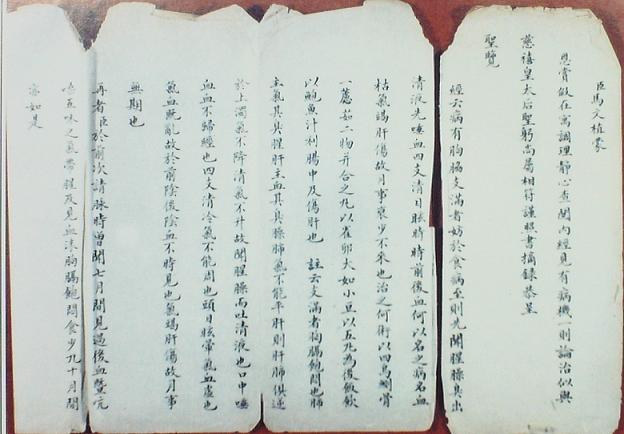 臣馬文植蒙
恩賞假在寓調理靜心查閱內經見有病機一則論治似與
慈禧皇太后聖躬尚屬相符謹照書摘錄恭呈
聖覽
經云病有胸脇支滿者妨於食病至則先聞腥臊臭出
清液先唾血四支清目眩時時前後血何以名之病名血
枯氣竭肝傷故月事衰少不來也治之何術以四烏鰂骨
一藘茹二物并合之丸以雀卵大如小豆以五丸為後飯飲
以鮑魚汁利腸中及傷肝也 註云支滿者胸膈飽悶也肺
主氣其臭腥肝主血其臭臊肺氣不能平肝則肝肺俱逆
於上濁氣不降清氣不升故聞腥臊而吐清液也口中唾
血血不歸經也四支清冷氣不能周也頭目眩暈氣血虛也
氣血既亂故於前陰後陰血不時見也氣竭肝傷故月事
無期也
再者臣於前次請脉時曾聞七月間見過後血暨
五味之氣帶腥及見血沫胸膈飽悶食少九十月間
如是